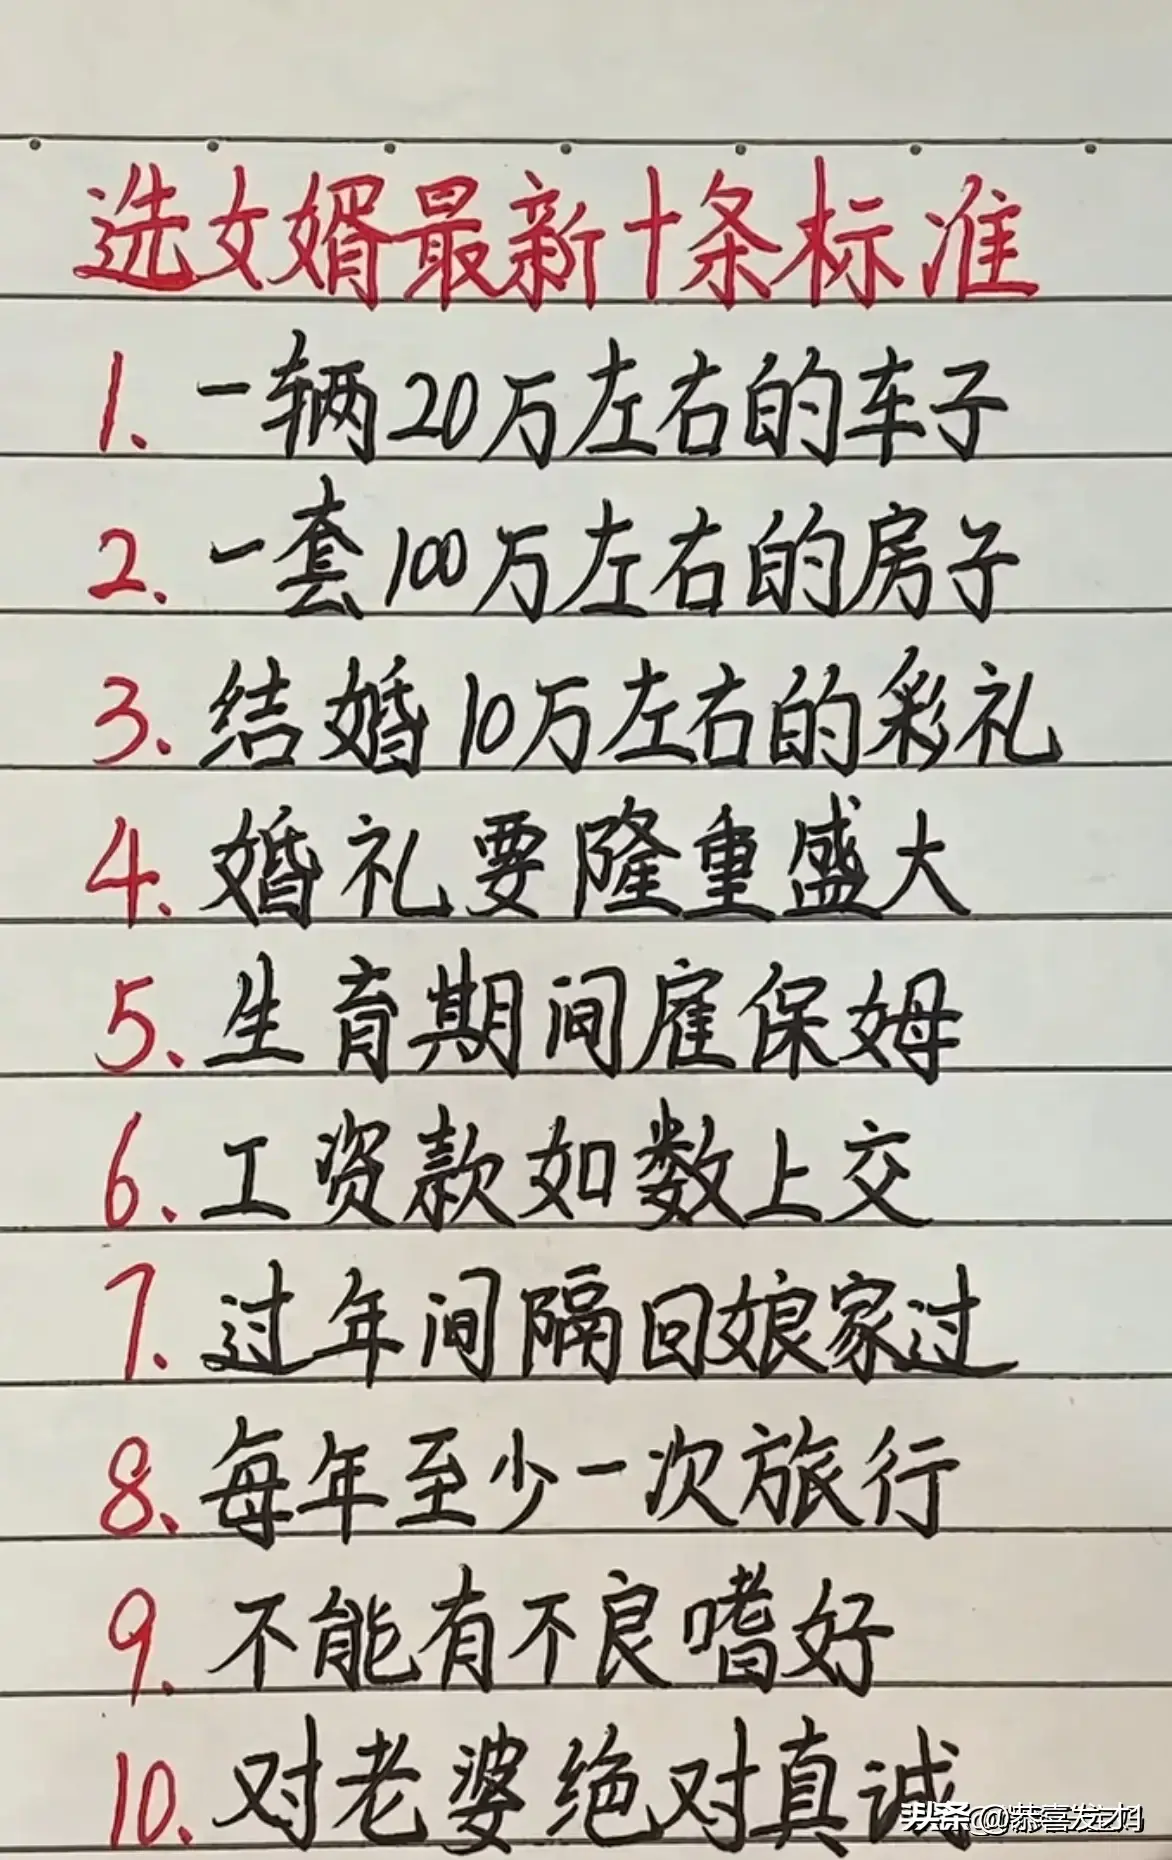 选女婿最新十条标准
1、一辆20万左右的车子
2、一套100万左右的房子
3、结婚10万左右的彩礼
4、婚礼要隆重盛大
5、生育期间雇保姆
6、工资款如数上交
7、过年间隔回娘家过
8、每年至少一次旅行
9、不能有不良嗜好
10、对老婆绝对真诚
头条@恭喜发